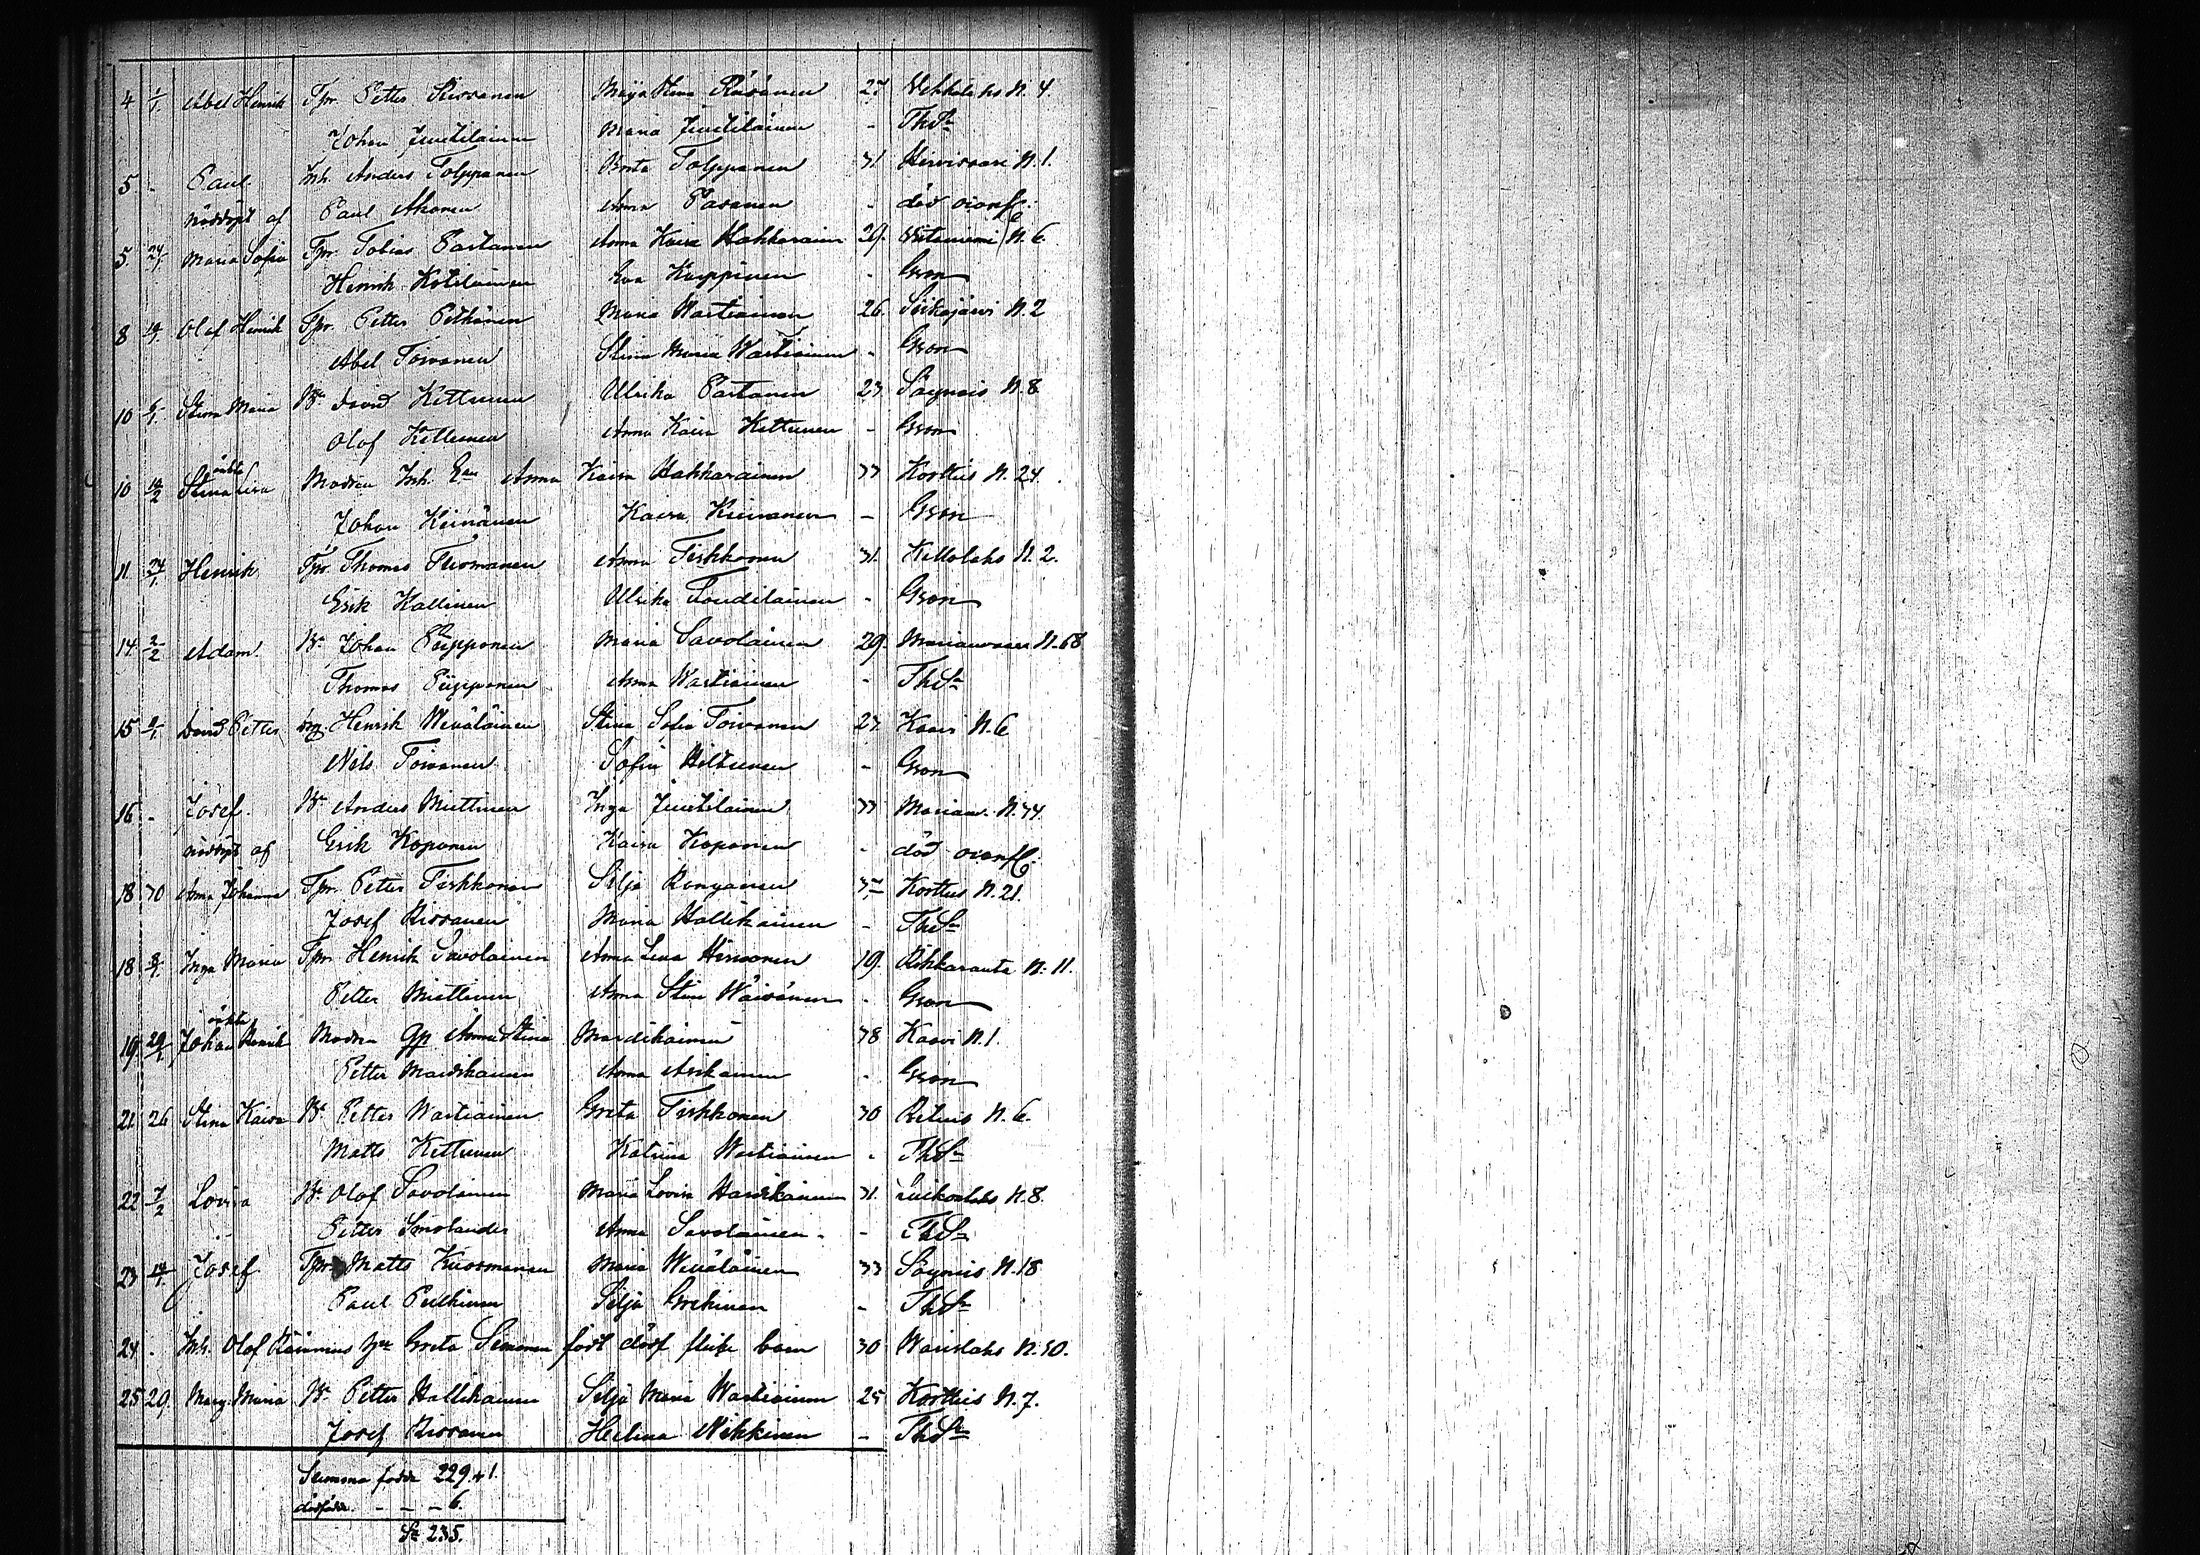 4 1/1 Abel Henrik Tpr. Petter Rissanen Maija Stina Räsänen 27 Wehkalaks N. 4.
Johan Juutilainen Maria Juutilainen - ThSr
5 - Paul Inh. Anders Tolppanen Brita Tolppanen 31 Hirvisaari N. 1.
nöddöpt af Paul Ahonen Anna Pasanen - död
5. 24/1 Maria Sofia Tpr. Tobias Partanen Anna Kaisa Hakkarainen 29. N. 6.
Henrik Kotilainen Eva Karppinen - Gson
8 14/1 Olof Henrik Tpr. Petter Pitkänen Maria Wartiainen 26. Siikajärvi N. 2
Abel Toivanen Stina Maria Wartiainen - Gson
10 6/1 Stina Maria Bd. David Kettunen Ulrika Partanen 23 Säyneis N. 8
Olof Kettunen Anna Kaisa Kettunen - Gson
oäkta
10 14/2 Stina Lisa Modren Inh. Anna Kaisa Hakkarainen 33 Kortteis N. 24.
Johan Keinänen Kaisa - Gson
11 24/1 Henrik Tpr. Thomas Tuomanen Anna Tirkkonen 31. Kettolaks N. 2.
Erik Hallinen Ulrika - Gson
14 2/2 Adam. Bd. Johan Piipponen Maria Savolainen 29. Marianvaara N. 68
Thomas Piipponen Anna Wartiainen - ThSr
15 9/1 David Petter Henrik Wenäläinen Stina Sofia Toivanen 27. Kaavi N. 6
Nils Toivanen Sofia Hiltunen - Gson
16 - Josef. Bd. Anders Miettinen Inga Juutilainen 33 Marianv. N. 74.
nöddöpt af Erik Koponen Kaisa Koponen - död
18 30 Anna Johanna Tpr. Peter Tirkkonen Silja Ronganen 37 Korttus N. 21.
Josef Rissanen Maria Hallikainen - ThSr
18 8/1 Inga Maria Tpr. Henrik Savolainen Anna Lena Hirvonen 19. Rikkaranta N. 11.
Petter Miettinen Anna Stina Wäisänen - Gson
oäkta
19 29/1 Johan Henrik Modren Gp Anna Stina Mardikainen 38 Kaavi N. 1.
Petter Mardikainen Anna Asikainen - Gson
21 26 Stina Kaisa Bd. Petter Wartiainen Greta Tirkkonen 30 Retuns N. 6.
Matts Kettunen Katrina Wartiainen - ThSr
22 7/2 Lovisa Bd. Olof Savolainen Maria Lovisa 31. N. 8.
Petter Smolander Anna Savolainen - ThSr
23 14/1 Josef Tpr. Matts Kuosmanen Maria Wenäläinen 33 Säyneis N. 18
Paul Pulkinen Silja - ThSr
24 - Inh. Olof Räsänens hu Greta Simonen född dödf. flicke barn 30 Warislaks N. 30.
25 29. Marg. Maria Bd. Petter Hallikainen Silja Maria Wartiainen 25 Kortteis N. 7.
Josef Rissanen Helena Nikkinen - ThSr
Summa födde 229. + 1.
dödfödde - - - 6.
Sa 235.